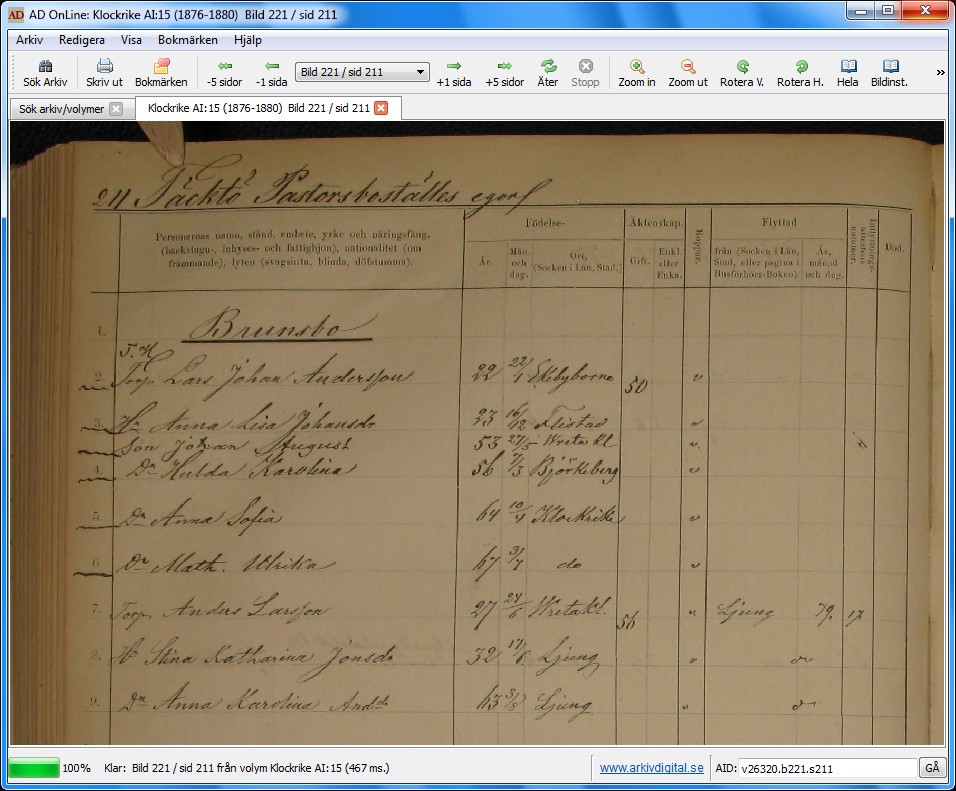 AD OnLine: Klockrike AI:15 (1876-1880) Bild 221 / sid 211
Arkiv Redigera Visa Bokmärken Hjälp
Sök Arkiv Skriv ut Bokmärken -5 sidor -1 sida Bild 221 / sid 211 +1 sida +5 sidor Åter Stopp Zoom in Zoom ut Rotera V. Rotera H. Hela Bildinst. »
Sök arkiv/volymer Klockrike AI:15 (1876-1880) Bild 221 / sid 211
211 Täcktö Pastorsboställes egor
Personernas namn, stånd, embete, yrke och näringsfång,
(backstugu-, inhyses- och fattighjon), nationalitet (om
främmande), lyten (svagsinta, blinda, döfstumma).
Födelse-
År. Mån. och dag. Ort, (Socken i Län, Stad.)
Äktenskap.
Gift. Enkl. eller Enka.
Koppor.
Flyttad
från (Socken i Län, Stad, eller pagina i Husförhörs-Boken).
År, månad och dag.
Inflyttnings-attestens nummer.
Död.
1. Brunsbo
T. M
2. Torp. Lars Johan Andersson 22 22/1 Ekebyborna 50 "
3. Hu Anna Lisa Johansdr 23 16/12 Flistad "
Son Johan August 53 27/5 Wreta kl "
4. Dr Hulda Karolina 56 7/3 Björkeberg "
5. Dr Anna Sofia 64 10/4 Klockrike "
6 Dr Math. Ulrika 67 3/7 do "
7. Torp. Anders Larsson 27 24/6 Wreta kl. 56 " Ljung 79. 17
8. Hu Stina Katharina Jonsdr 32 17/6 Ljung "
9. Dr Anna Karolina Andd 63 3/8 Ljung "
100% Klar: Bild 221 / sid 211 från volym Klockrike AI:15 (467 ms.) www.arkivdigital.se AID: v26320.b221.s211 GÅ